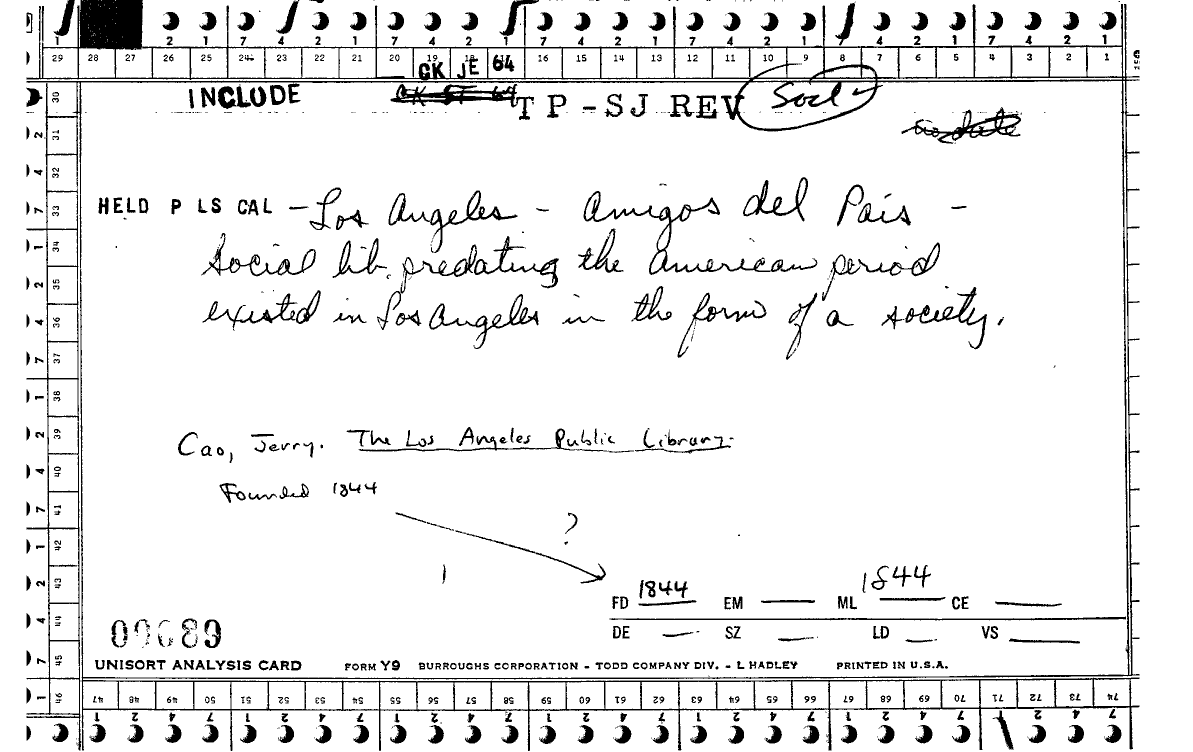 29 28 27 26 25 24 23 22 21 20 19 18 17 16 15 14 13 12 11 10 9 8 7 6 5 4 3 2 1
CK JE 64
INCLUDE TP-SJ REV Socl
no date
HELD P LS CAL - Los Angeles - Amigos del Pais -
Social lib. predating the American period
existed in Los Angeles in the form of a society.
Cao, Jerry. The Los Angeles Public Library.
Founded 1844
?
FD 1844 EM — ML 1844 CE —
DE — SZ — LD — VS —
00689
UNISORT ANALYSIS CARD FORM Y9 BURROUGHS CORPORATION - TODD COMPANY DIV. - L HADLEY PRINTED IN U.S.A.
47 48 49 50 51 52 53 54 55 56 57 58 59 60 61 62 63 64 65 66 67 68 69 70 71 72 73 74